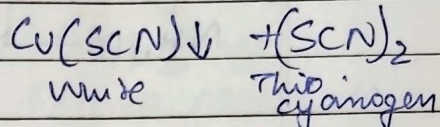 Cu(SCN)↓ +(SCN)₂
white Thio
cyanogen